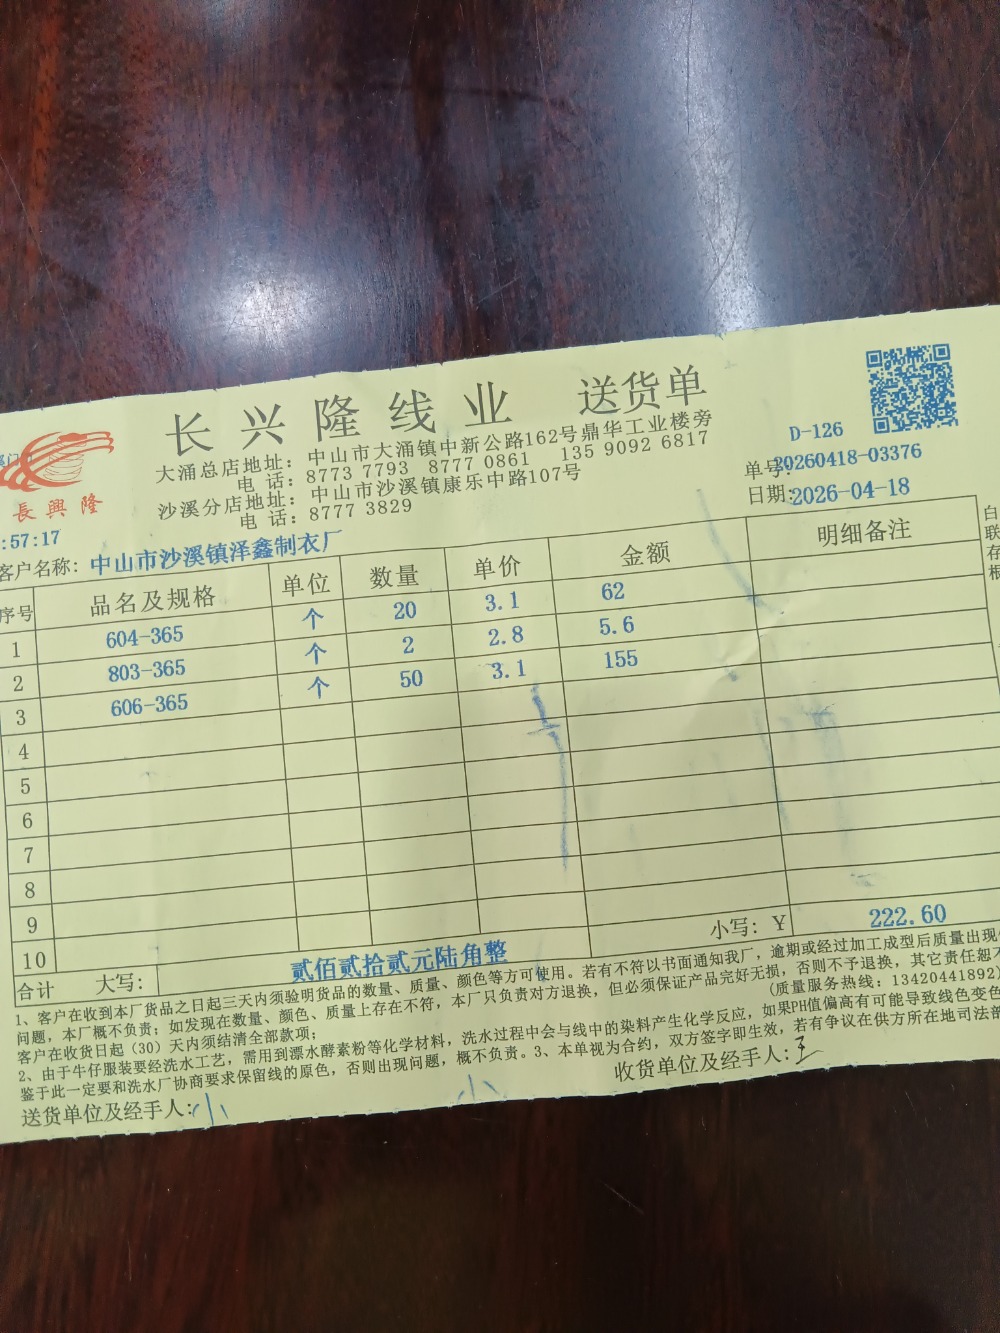 长兴隆线业 送货单
大涌总店地址：中山市大涌镇中新公路162号鼎华工业楼旁
电 话：8773 7793 8777 0861 135 9092 6817
沙溪分店地址：中山市沙溪镇康乐中路107号
电 话：8777 3829
D-126
单号：20260418-03376
日期：2026-04-18
長興隆
:57:17
客户名称：中山市沙溪镇泽鑫制衣厂
序号 品名及规格 单位 数量 单价 金额 明细备注
1 604-365 个 20 3.1 62
2 803-365 个 2 2.8 5.6
3 606-365 个 50 3.1 155
4
5
6
7
8
9
10
合计 大写：贰佰贰拾贰元陆角整 小写：Y 222.60
白联存根
1、客户在收到本厂货品之日起三天内须验明货品的数量、质量、颜色等方可使用。若有不符以书面通知我厂，逾期或经过加工成型后质量出现
问题，本厂概不负责；如发现在数量、颜色、质量上存在不符，本厂只负责对方退换，但必须保证产品完好无损，否则不予退换，其它责任恕不
客户在收货日起（30）天内须结清全部款项； （质量服务热线：13420441892）
2、由于牛仔服装要经洗水工艺，需用到漂水酵素粉等化学材料，洗水过程中会与线中的染料产生化学反应，如果PH值偏高有可能导致线色变色
鉴于此一定要和洗水厂协商要求保留线的原色，否则出现问题，概不负责。3、本单视为合约，双方签字即生效，若有争议在供方所在地司法部
送货单位及经手人：小 收货单位及经手人：